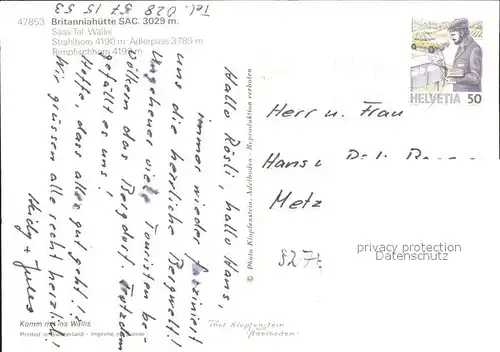 Tel. 028 57 15 53
47853 Britanniahütte SAC. 3029 m.
Saas Tal, Wallis
Strahlhorn 4190 m Adlerpass 3789 m
Rimpfischhorn 4198 m
Hallo Rösli, hallo Hans,
immer wieder fasziniert
uns die herrliche Bergwelt!
Ungeheuer viele Touristen be-
völkern das Bergdorf. Trotzdem
gefällt es uns!
Hoffe, dass alles gut geht!
Wir grüssen alle recht herzlich!
Heidy + Jules
© Photo Klopfenstein, Adelboden - Reproduktion verboten
HELVETIA 50
Herr u. Frau
Hans u
Metz
privacy protection
Datenschutz
Komm mit ins Wallis
Printed in Switzerland - Imprimé en Suisse
Photo Klopfenstein
Adelboden